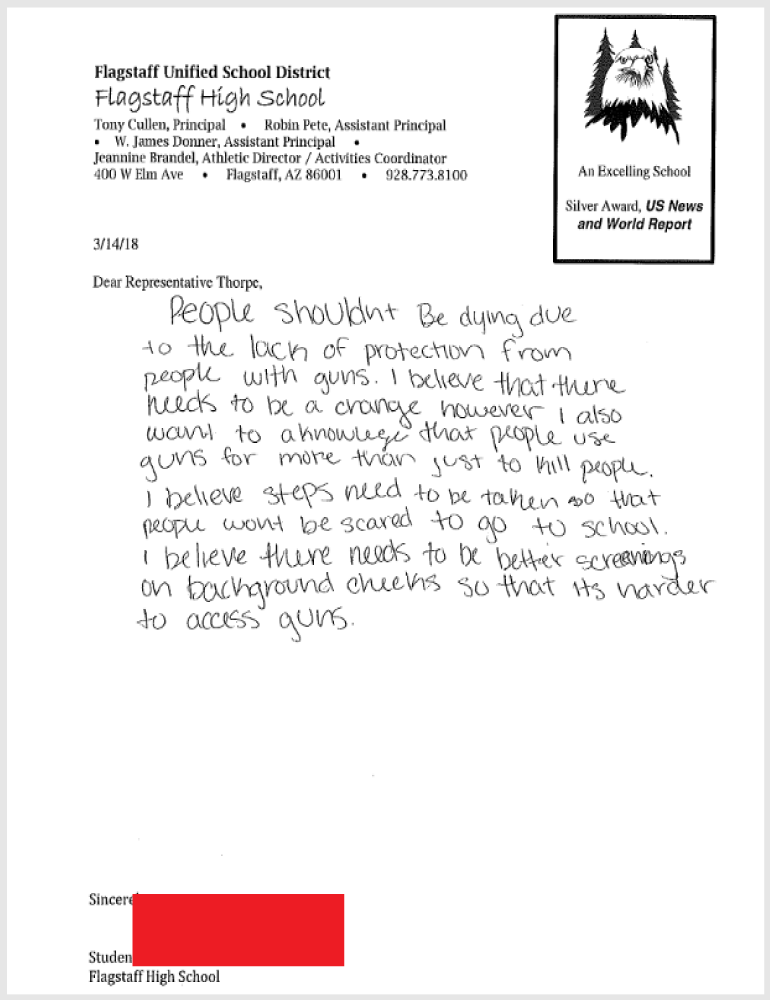 Flagstaff Unified School District
Flagstaff High School
Tony Cullen, Principal • Robin Pete, Assistant Principal
• W. James Donner, Assistant Principal •
Jeannine Brandel, Athletic Director / Activities Coordinator
400 W Elm Ave • Flagstaff, AZ 86001 • 928.773.8100
An Excelling School
Silver Award, US News
and World Report
3/14/18
Dear Representative Thorpe,
People shouldnt Be dying due
to the lack of protection from
people with guns. I believe that there
needs to be a change however I also
want to aknowlege that people use
guns for more than just to kill people.
I believe steps need to be taken so that
people wont be scared to go to school.
I believe there needs to be better screenings
on background checks so that its harder
to access guns.
Sincere
Studen
Flagstaff High School